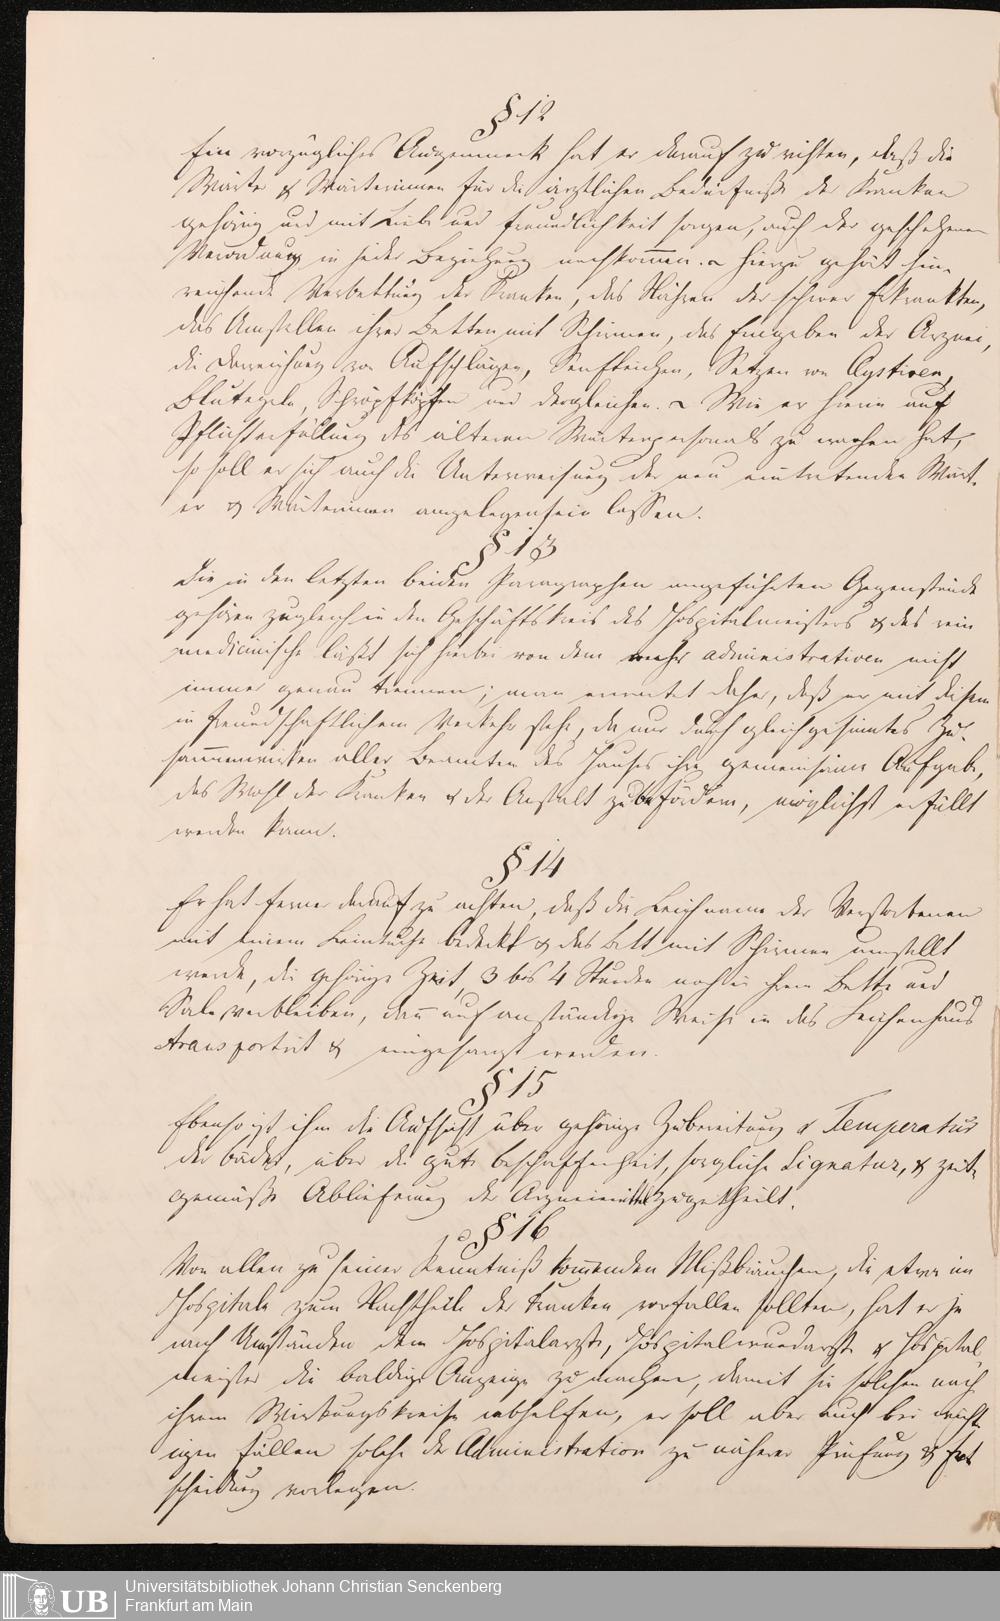 § 12
Ein vorzügliches Augenmerk hat er darauf zu richten, daß die
Wärter & Wärterinnen für die ärztlichen Bedürfnisse der Kranken
gehörig und mit Liebe und Freundlichkeit sorgen, auch der geschehenen
Verordnung in jeder Beziehung nachkom̄en. – Hierzu gehört hin-
reichende Verbettung der Kranken, das Nähren der schwer Erkrankten,
das Umstellen ihrer Betten mit Schirmen, das Eingeben der Arznei,
die Darreichung von Aufschlägen, Senfteichen, Setzen von Clystiren,
Blutegeln, Schröpfköpfen und dergleichen. – Wie er hierin auf
Pflichterfüllung des älteren Wärterpersonals zu wachen hat,
so soll er sich auch die Unterweisung der neu eintretenden Wärt-
er & Wärterinnen angelegensein lassen.
§ 13
Die in den letzten beiden Paragraphen angeführten Gegenstände
gehören zugleich in den Geschäftskreis des Hospitalmeisters & das rein
medicinische läßt sich hierbei von dem mehr administrativen nicht
immer genau trennen; man erwartet daher, daß er mit diesem
in freundschaftlichem Verkehr stehe, da nur durch gleichgesinntes Zu-
sam̄enwirken aller Beamten des Hauses ihre gemeinsame Aufgabe,
das Wohl der Kranken & der Anstalt zu befördern, möglichst erfüllt
werden kann.
§ 14
Er hat ferner darauf zu achten, daß die Leichname der Verstorbenen
mit einem Leintuche bedeckt & das Bett mit Schirmen umstellt
werde, die gehörige Zeit, 3 bis 4 Stunden noch in ihrem Bette und
Sale verbleiben, dan̄ auf anständige Weise in das Leichenhaus
transportirt & eingesargt werden.
§ 15
Ebenso ist ihm die Aufsicht über gehörige Zubereitung & Temperatur
der Bäder, über die gute Beschaffenheit, sorgliche Signatur, & zeit-
gemäße Ablieferung der Arzneimittel zugetheilt.
§ 16
Von allen zu seiner Kenntniß kom̄enden Mißbräuchen, die etwa im
Hospitale zum Nachtheile der Kranken vorfallen sollten, hat er je
nach Umständen dem Hospitalarzte, Hospitalwundarzte & Hospital
meister die baldige Anzeige zu machen, damit sie solchen nach
ihrem Wirkungskreise abhelfen, er soll aber auch bei wicht-
igen Fällen solche der Administration zu näherer Prüfung & Ent
scheidung vorlegen.
UB
Universitätsbibliothek Johann Christian Senckenberg
Frankfurt am Main